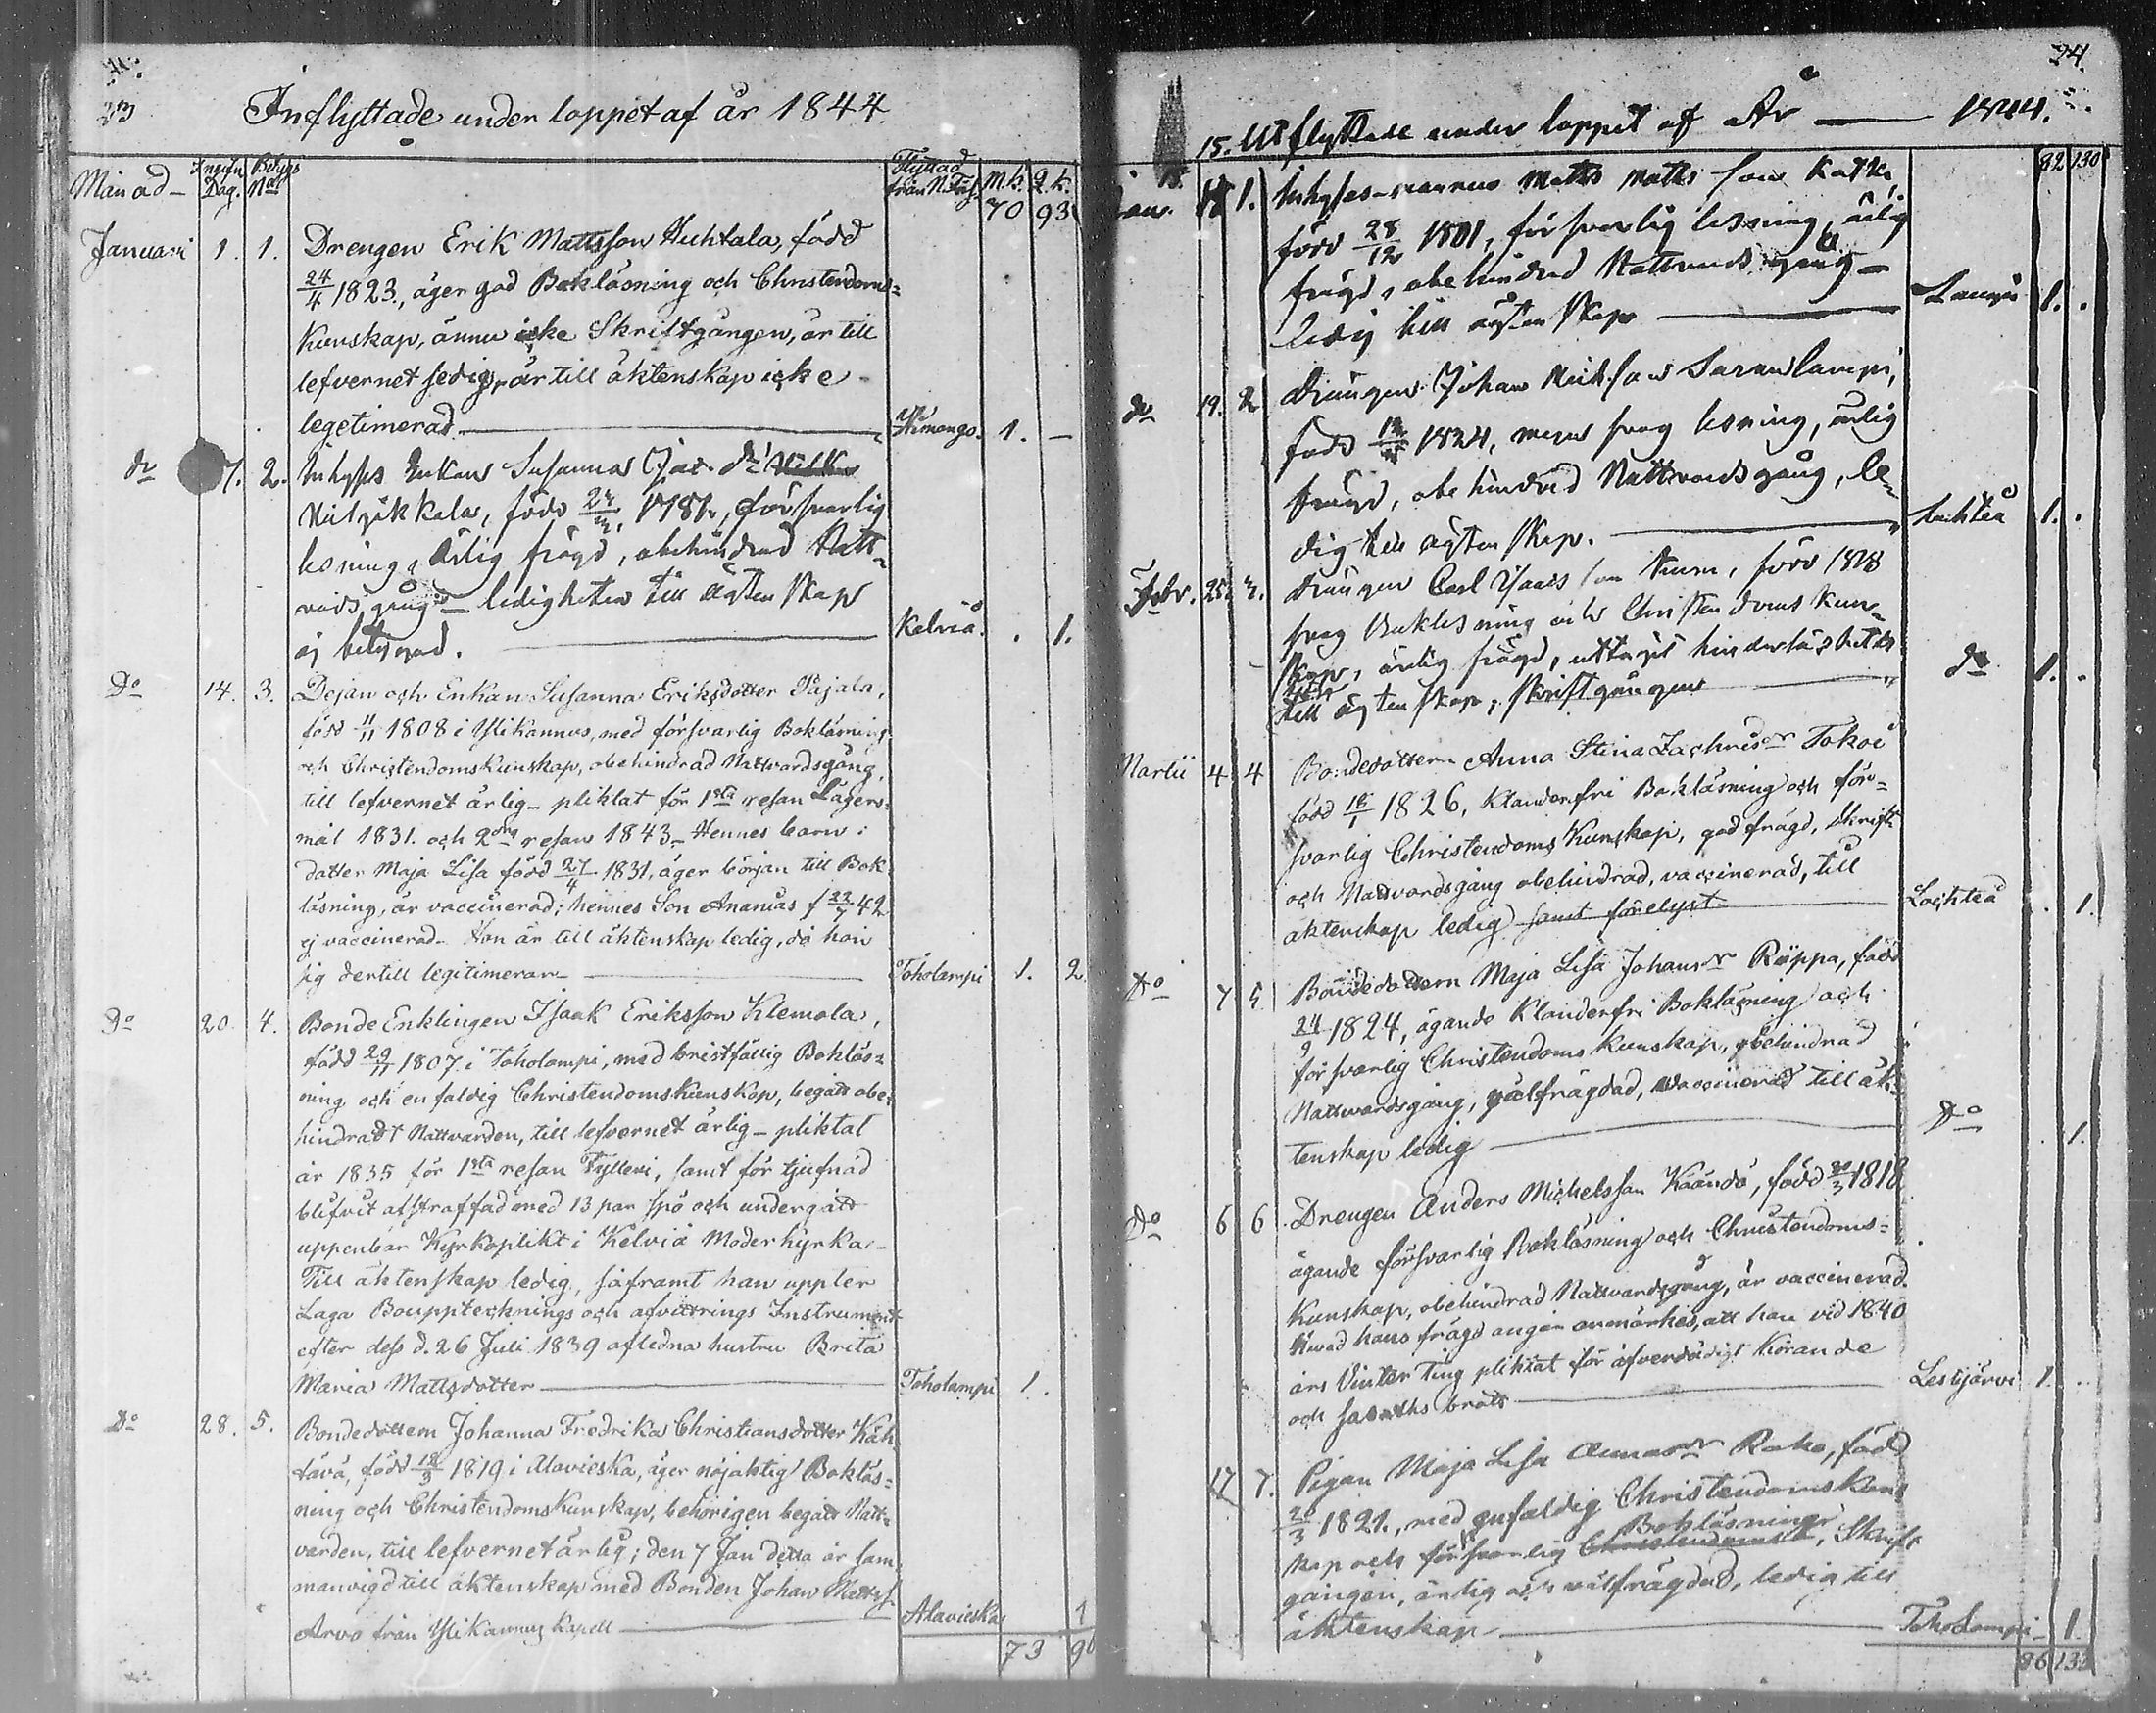 23
Inflyttade under loppet af år 1844.
Månad Dag. No Flyttad från N. Förs. m.k. q.k.
70 93
Januari 1. 1. Drengen Erik Mattsson Huhtala, född
24/4 1823., äger god Bokläsning och Christendoms=
Kunskap, ännu icke Skriftgången, är till
lefvernet sedig, är till äktenskap icke
legetimerad. Himango. 1. —
do 7. 2. Inhyses Enkan Susanna Jac. dr
född 1781, försvarlig
lesning, ärlig frägd, obehindrad Natt=
vards gång — ledigheten till ägtenskap
ej betygad. Kelviå . 1.
Do 14. 3. Dejan och Enkan Susanna Eriksdotter Pajala,
född 11/11 1808 i Ylikannus, med försvarlig Bokläsning
och Christendomskunskap, obehindrad Nattvardsgång,
till lefvernet ärlig – pliktat för 1sta resan Lägers=
mål 1831. och 2dra resan 1843 – Hennes barn:
dotter Maja Lisa född 27/4 1831, äger början till Bok
läsning, är vaccinerad; hennes Son Ananias f 22/7 42
ej vaccinerad. Hon är till äktenskap ledig, då hon
sig dertill legitimerar — Toholampi 1. 2.
Do 20. 4. Bonde Enklingen Isaak Eriksson Klemola,
född 29/11 1807 i Toholampi, med bristfällig Bokläs=
ning och enfaldig Christendomskunskap, begått obe=
hindradt Nattvarden, till lefvernet ärlig – pliktat
år 1835 för 1sta resan Fylleri, samt för tjufnad
blifvit afstraffad med 13 par spö och undergått
uppenbar Kyrkoplikt i Kelviå Moderkyrka –
Till äktenskap ledig, såframt han uppter
Laga Bouppteknings och afvittrings Instrument
efter dess d. 26 Juli 1839 aflidna hustru Brita
Maria Mattsdotter — Toholampi 1.
Do 28. 5. Bondedottern Johanna Fredrika Christiansdotter Käh
tävä, född 18/3 1819 i Alavieska, äger nöjaktig Bokläs=
ning och Christendomskunskap, behörigen begått Natt=
varden, till lefvernet ärlig; den 7 Jan detta år sam
manvigd till äktenskap med Bonden Johan Mattss.
Arvo från Ylikannus Kapell — Alavieska 1
73 96
24.
15. Utflyttade under loppet af År — 1844.
82 130
1. Inhyses-mannen Matts Matts son
född 28/12 1801, försvarlig lesning, ärlig
frägd, obehindrad Nattvards gång —
ledig till ägtenskap 1. .
do 19. 2 Drängen Johan
född 1824, svag lesning, ärlig
frägd, obehindrad Nattvards gång, le=
dig till ägtenskap. — Lochteå 1. .
Febr. 25. 3. Drängen Carl Isaks son född 1818
svag Boklesning och Christendoms kun=
skap, ärlig frägd,
till ägtenskap, Skriftgången do 1. .
Martii 4 4 Bondedottern Anna Stina Zachrisdr Tokoi
född 18/1 1826, Klanderfri Bokläsning och för=
svarlig Christendoms Kunskap, god frägd, Skrift
och Nattvardsgång obehindrad, vaccinerad, till
äktenskap ledig samt förelyst — Lochteå . 1.
Do 7 5 Bondedottern Maja Lisa Johansdr Riippa, född
24/9 1824, ägande Klanderfri Bokläsning och
försvarlig Christendoms kunskap, obehindrad
Nattvardsgång, välfrägdad, vaccinerad till äk=
tenskap ledig — Do . 1.
Do 6 6. Drengen Anders Michelsson Kaando, född 30/3 1818
ägande försvarlig Bokläsning och Christendoms=
Kunskap, obehindrad Nattvardsgång, är vaccinerad.
Hvad hans frägd angår anmärkes, att han vid 1840
års Vinter Ting pliktat för ofverdådigt Körande
och sabbaths brott — Lestijärvi 1. ..
17 7. Pigan Maja Lisa Raho, född
20/3 1821., med enfaldig Christendomskun
skap och försvarlig Christendomsk Bokläsning, Skrift
gången, ärlig och välfrägdad, ledig till
äktenskap — Toholampi – 1.
86 133